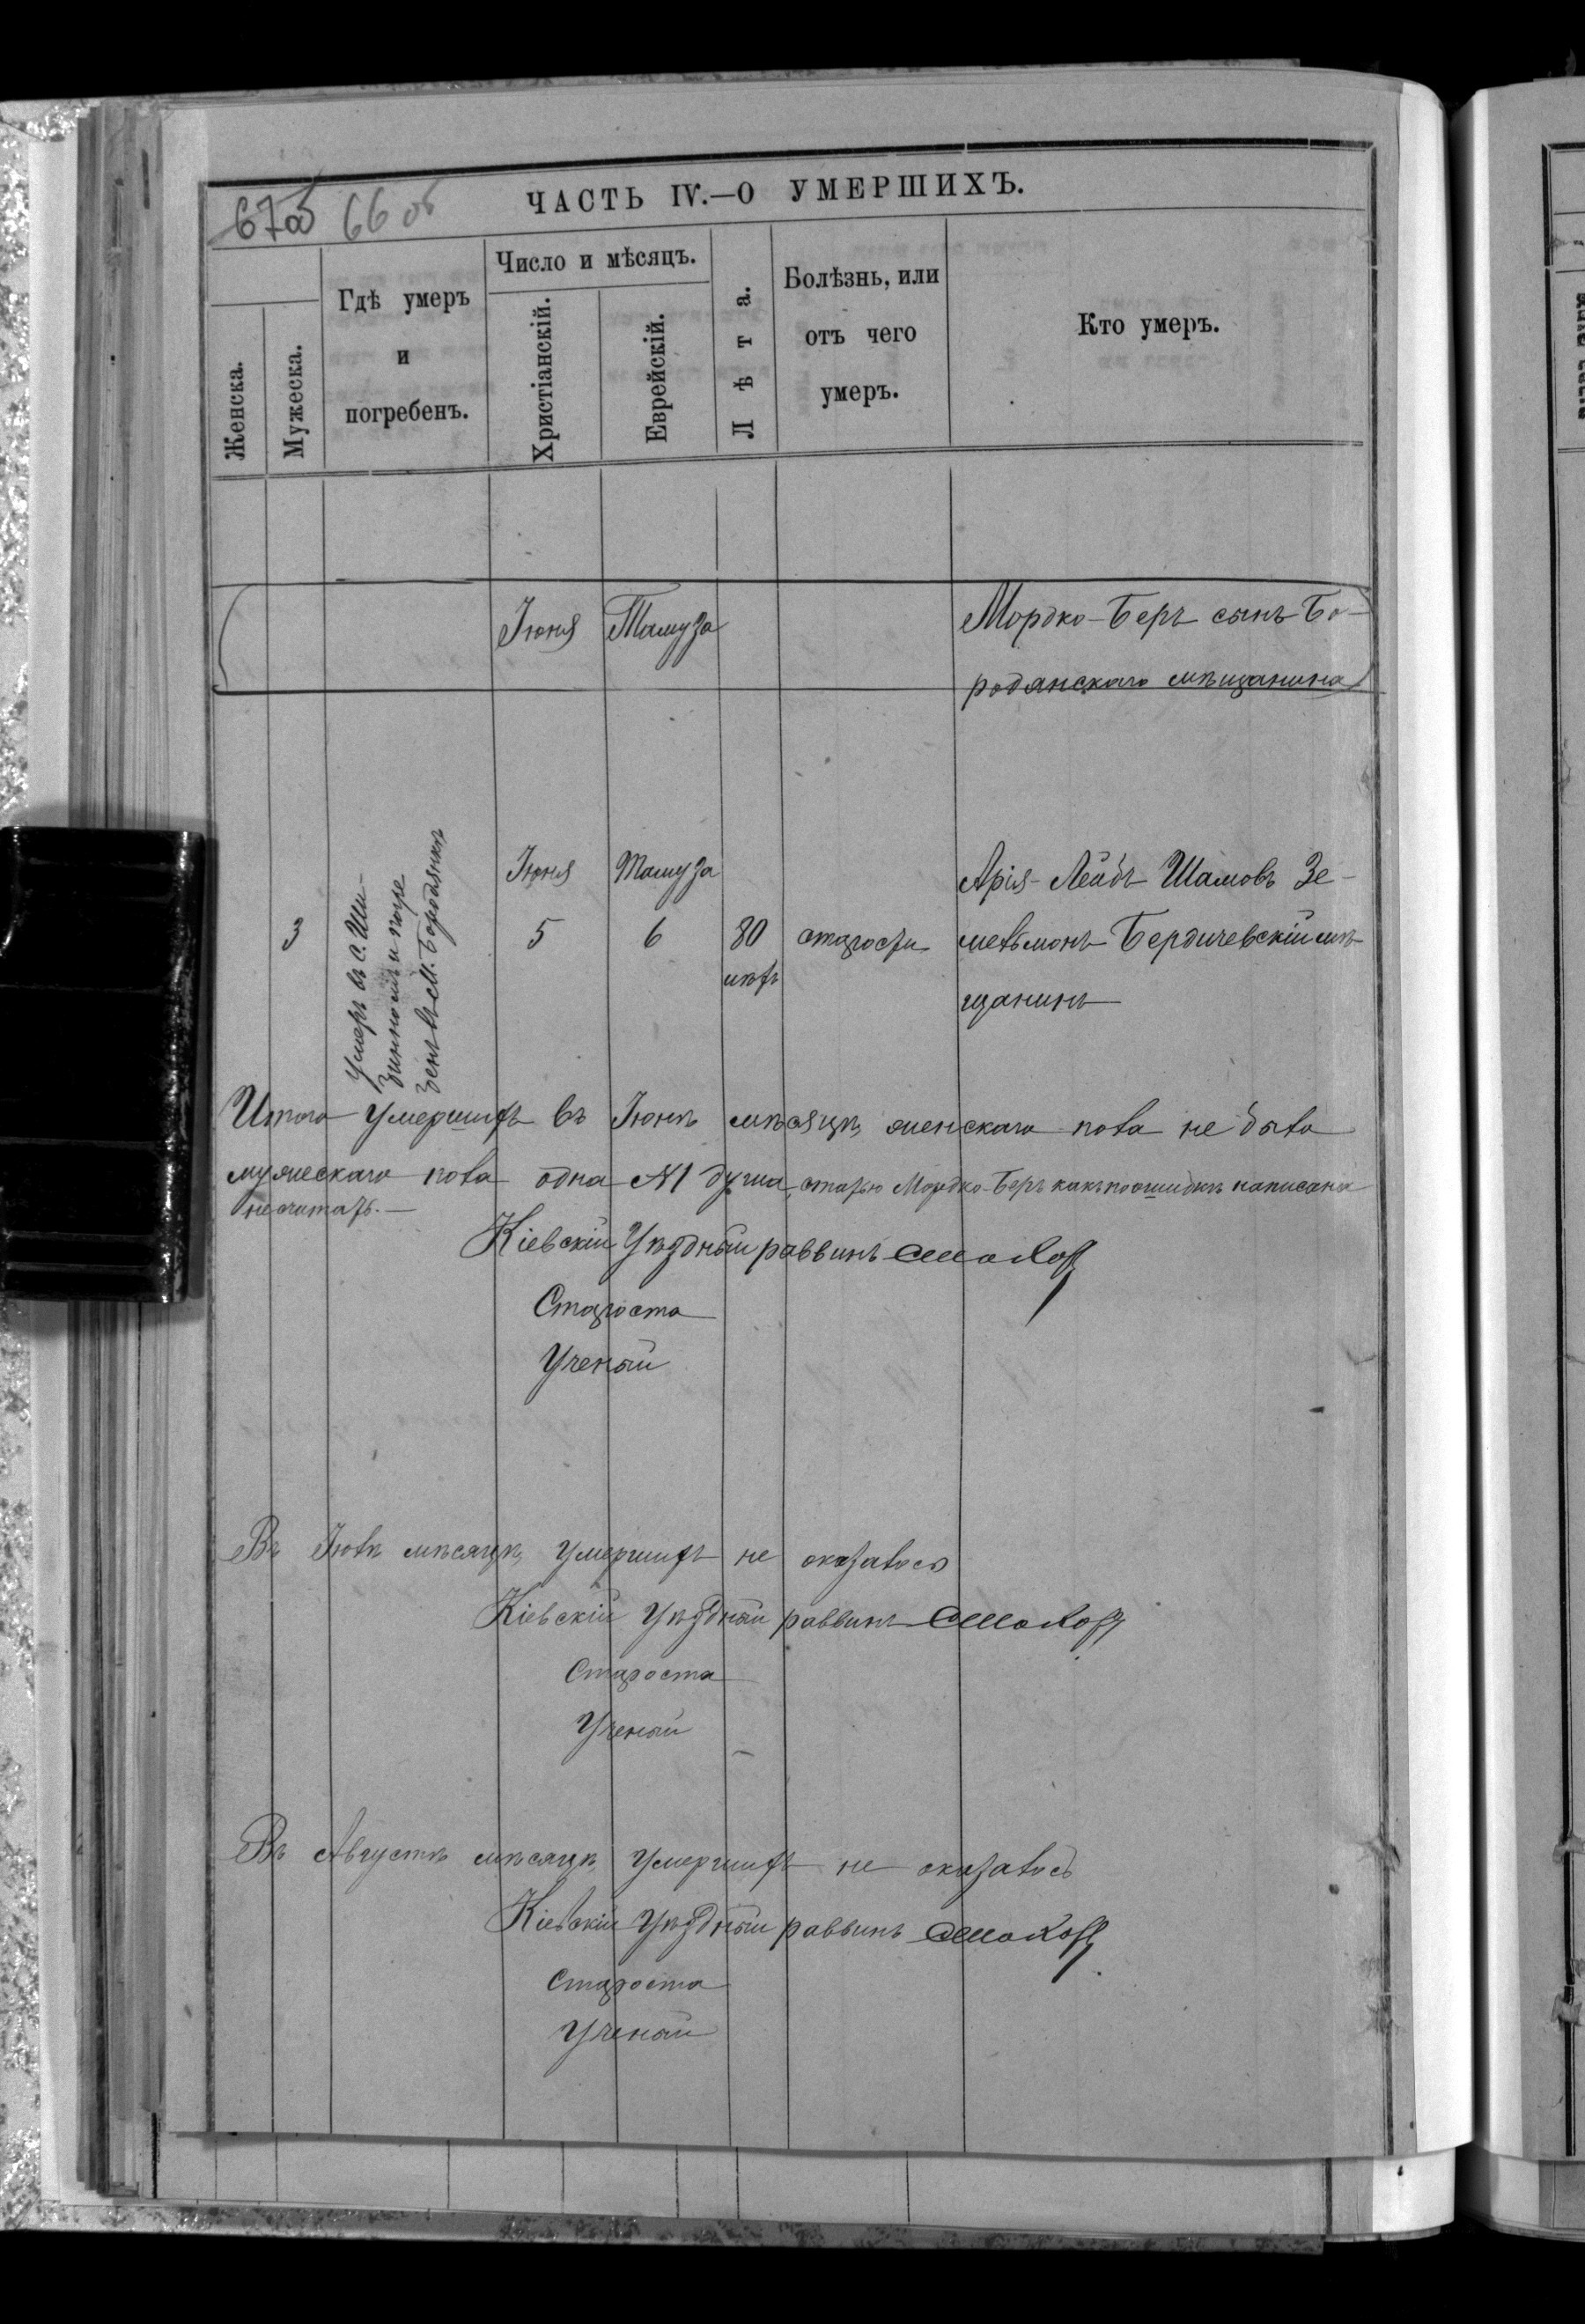 67об 66 об
ЧАСТЬ IV.—О УМЕРШИХЪ.
Женска.
Мужеска.
Гдѣ умеръ
и
погребенъ.
Число и мѣсяцъ.
Христіанскій.
Еврейскій.
Лѣта.
Болѣзнь, или
отъ чего
умеръ.
Кто умеръ.
Іюня Тамуза Мордко-Беръ сынъ Бо-
родянскаго мѣщанина
Іюня Тамуза Арія-Лейбъ Шамовъ Зе-
3 5 6 80 старости Бердичевскій мѣ-
лѣтъ щанинъ
Умеръ въ с.
и погре
бенъ въ м. Бородянкѣ
Итого умершихъ въ Іюнѣ мѣсяцѣ, женскаго пола не было
мужескаго пола одна №1 душа, статью Мордко-Беръ какъ по ошибкѣ написана
не считать.—
Кіевскій Уѣздный раввинъ
Староста
Ученый
Въ Іюлѣ мѣсяцѣ, умершихъ не оказалось
Кіевскій Уѣздный раввинъ
Староста
Ученый
Въ Августѣ мѣсяцѣ, умершихъ не оказалось
Кіевскій Уѣздный раввинъ
Староста
Ученый